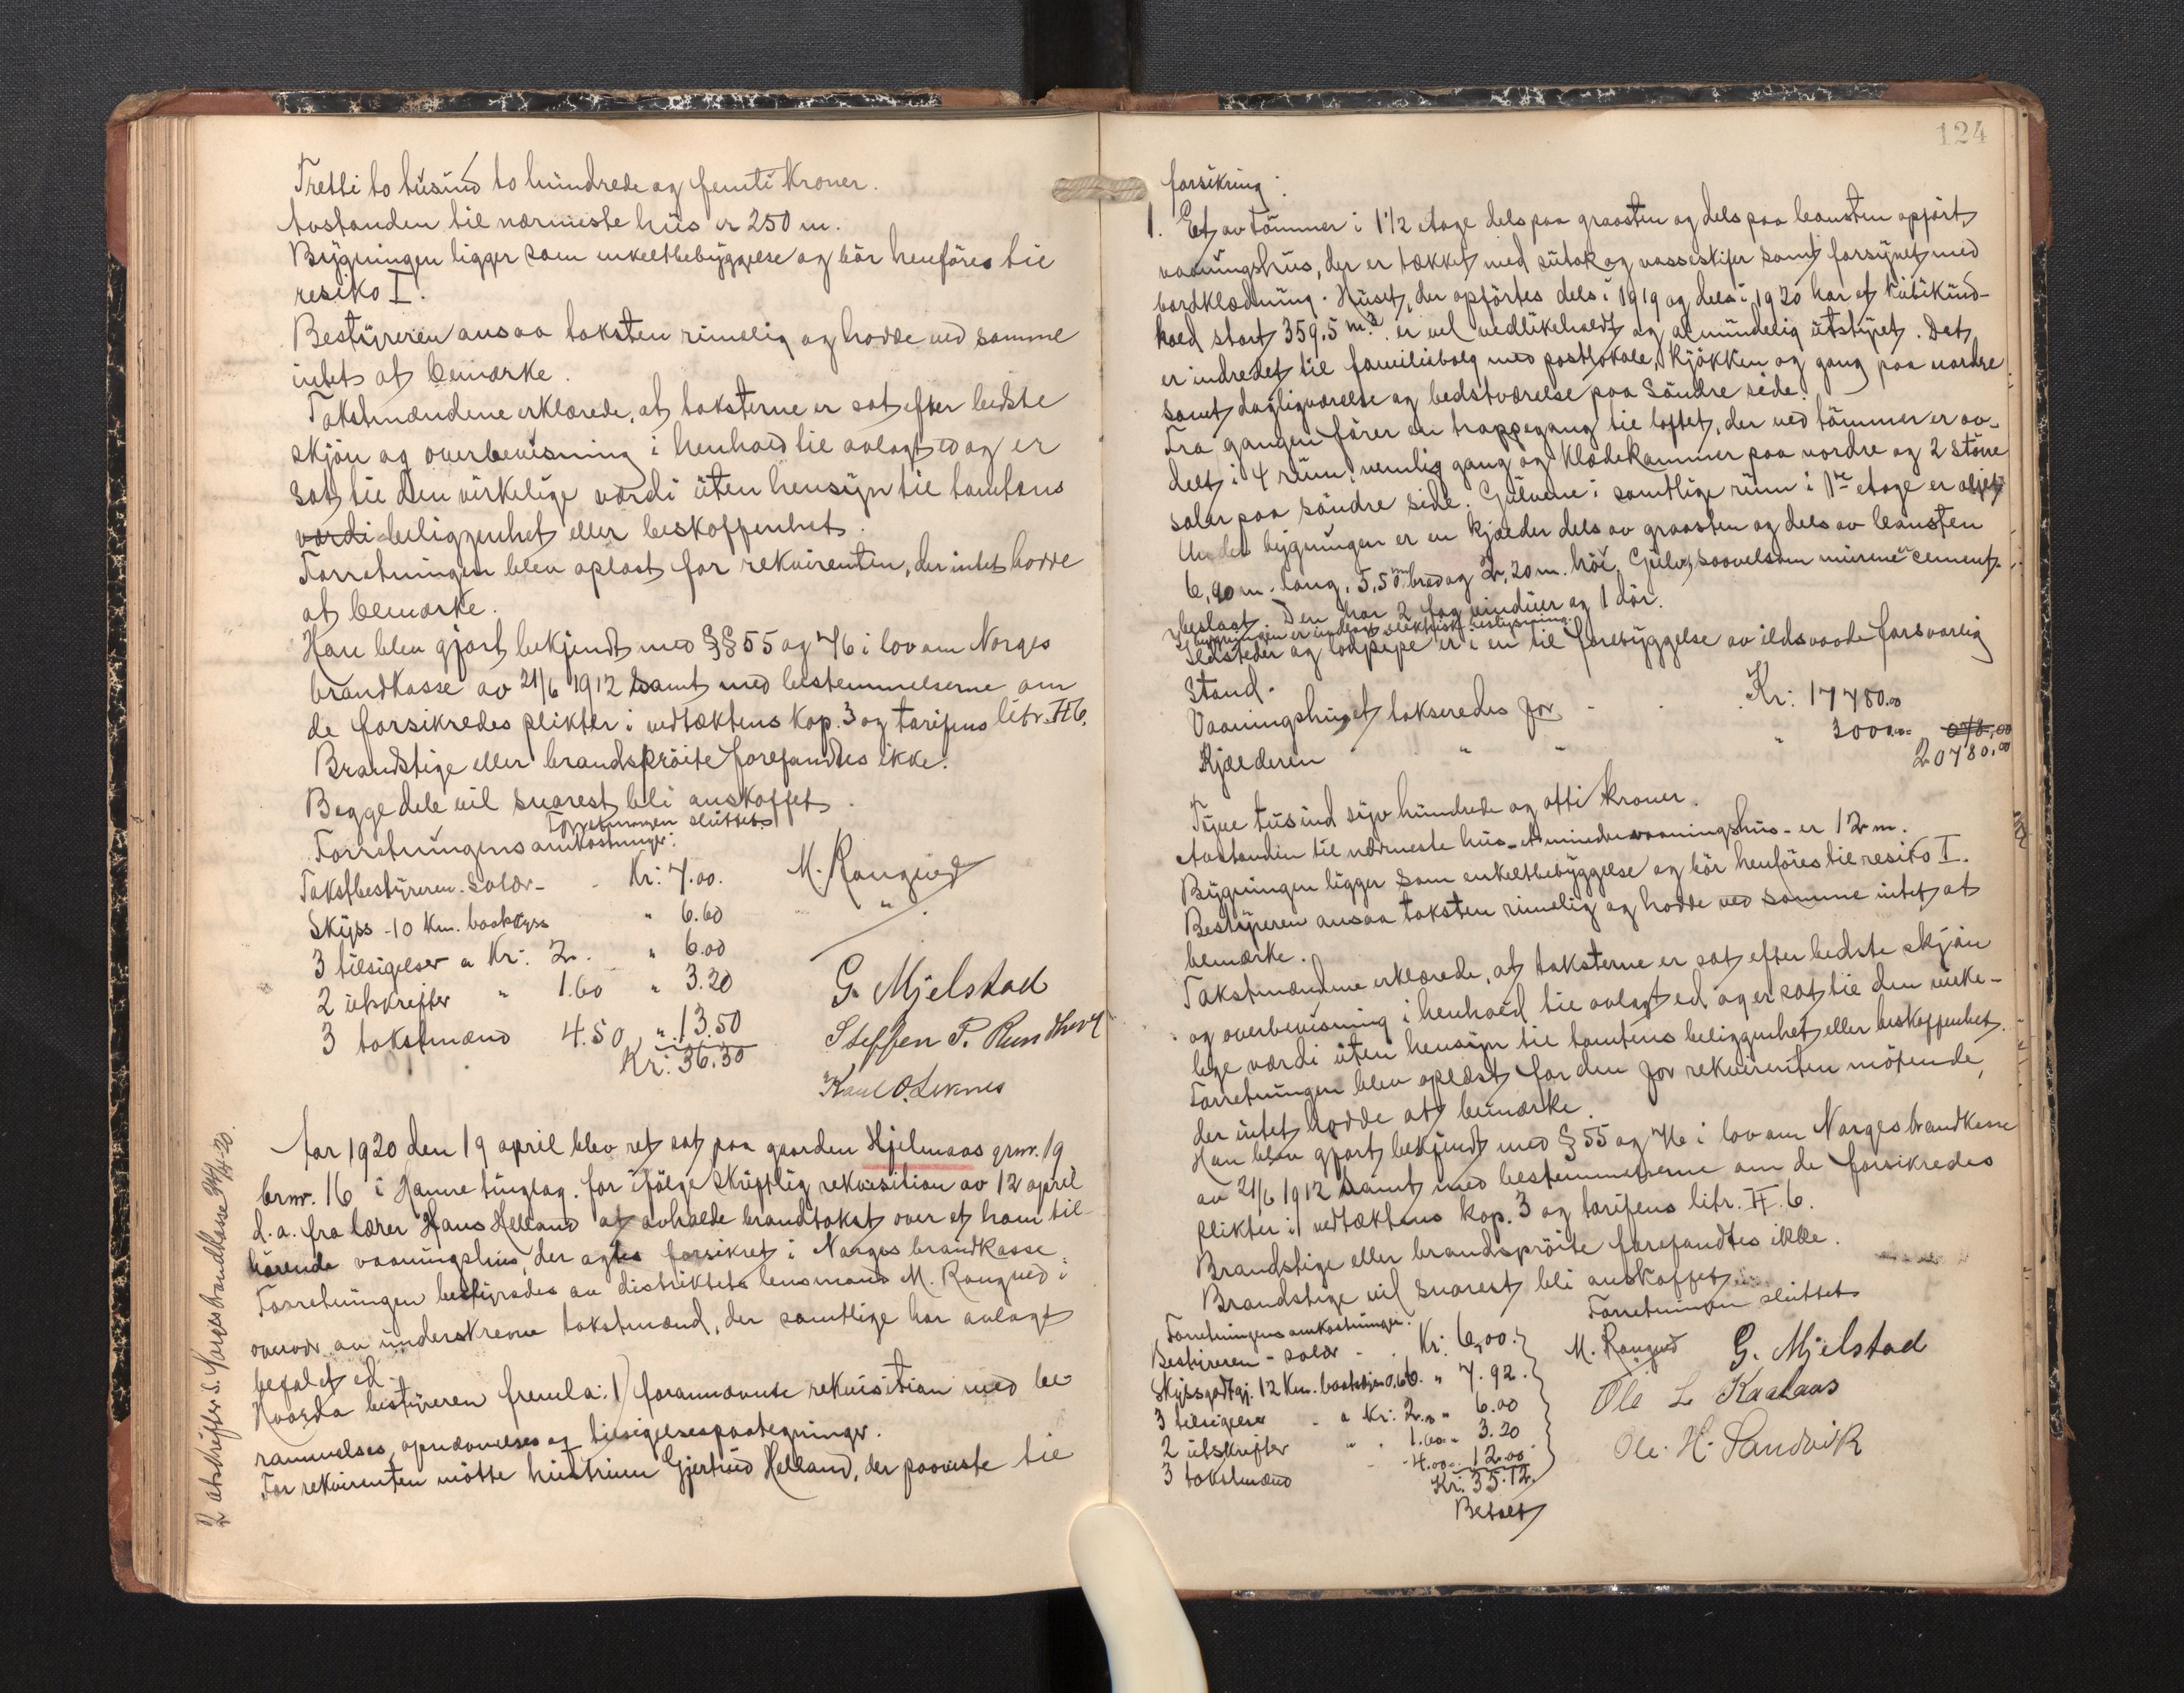 Tretti to tusind to hundrede og femti kroner.
Avstanden til nærmeste hus er 250 m.
Bygningen ligger som enkeltbebyggelse og bør henføres til
resiko I.
Bestyreren ansaa taksten rimelig og hadde ved samme
intet at bemærke.
Takstmændene erklærede, at taksterne er sat efter bedste
skjøn og overbevisning i henhold til avlagt ed og er
sat til den virkelige værdi uten hensyn til tomtens
værdi beliggenhet eller beskaffenhet.
Forretningen blev oplæst for rekvirenten, der intet hadde
at bemærke.
Han blev gjort bekjendt med §§ 55 og 76 i lov om Norges
brandkasse av 21/6 1912 samt med bestemmelserne om
de forsikredes plikter i vedtæktens kap. 3 og tarifens litr. H 6.
Brandstige eller brandsprøite forefandtes ikke.
Begge dele vil snarest bli anskaffet.
Forretningen sluttet.
Forretningens omkostninger:
Takstbestyreren. salær - - Kr: 7.00. M. Rongved
Skyss - 10 Km. baatskyss " 6.60 "
3 tilsigelser a Kr: 2. " 6.00
2 utskrifter " 1.60 " 3.20 G. Mjelstad
3 takstmænd 4.50 " 13.50 Steffen P. Rundhovd
Kr: 36.30
Karl O. Leknes
2 utskrifter s. Norges brandkasse 24/4-20.
Aar 1920 den 19 april blev ret sat paa gaarden Hjelmaas grnr. 19
brnr. 16 i Hamre tinglag. for ifølge skriftlig rekvisition av 12 april
d.a. fra lærer Hans Helland at avholde brandtakst over et ham til-
hørende vaaningshus, der agtes forsikret i Norges brandkasse.
Forretningen bestyredes av distriktets lensmand M. Rongved i
overvær av underskrevne takstmænd, der samtlige har avlagt
befalet ed.
Hvorda bestyreren fremla: 1) forannævnte rekvisition med be-
rammelses, opnævnelses og tilsigelsespaategninger.
For rekvirenten møtte hustruen Gjertrud Helland, der paaviste til
124
forsikring:
1. Et av tømmer i 1 1/2 etage dels paa graasten og dels paa leansten opført
vaaningshus, der er tækket med sutak og vosseskifer samt forsynet med
bordklædning. Huset, der opførtes dels i 1919 og dels i 1920 har et kubikind-
hold stort 359,5 m.3. er vel vedlikeholdt og almindelig utstyret. Det
er indredet til familiebolig med postlokale, kjøkken og gang paa nordre
samt dagligværelse og bedstværelse paa søndre side.
Fra gangen fører en trappegang til loftet, der ved tømmer er av-
delt i 4 rum, nemlig gang og klædekammer paa nordre og 2 større
saler paa søndre side. Gulvene i samtlige rum i 1ste etage er oljet
Under bygningen er en kjælder dels av graasten og dels av leansten
6,90 m. lang, 5,50 m bred og 2,20 m. høi. Gulv, saavelsom murene er cement-
beslaat. Den har 2 fag vinduer og 1 dør.
I bygningen er indlagt elektrisk belysning.
Ildsteder og lodpipe er i en til forebyggelse av ildsvaade forsvarlig
stand.
Vaaningshuset takseredes for - . . Kr: 17780.00
Kjælderen " " " 3000.00 078,00
20780,00
Tyve tusind syv hundrede og otti kroner.
Avstanden til nærmeste hus - et mindre vaaningshus - er 12 m.
Bygningen ligger som enkeltbebyggelse og bør henføres til resiko I.
Bestyreren ansaa taksten rimelig og hadde ved samme intet at
bemærke.
Takstmændene erklærede, at taksterne er sat efter bedste skjøn
og overbevisning i henhold til avlagt ed, og er sat til den virke-
lige værdi uten hensyn til tomtens beliggenhet eller beskaffenhet.
Forretningen blev oplæst for den for rekvirenten møtende,
der intet hadde at bemærke.
Han blev gjort bekjendt med § 55 og 76 i lov om Norges brandkasse
av 21/6 1912 samt med bestemmelserne om de forsikredes
plikter i vedtæktens kap. 3 og tarifens litr. H. 6.
Brandstige eller brandsprøite forefandtes ikke.
Brandstige vil snarest bli anskaffet.
Forretningen sluttet
Forretningens omkostninger:
Bestyreren - salær - . Kr: 6,00. M. Rongved G. Mjelstad
Skyssgodtgj. 12 Km. baatskyss 0,66. " 7.92.
3 tilsigelser - a Kr: 2.00 " 6.00 Ole L. Kaalaas
2 utskrifter " " 1.60 " 3.20
3 takstmænd - - 4.00 . 12.00 Ole. H. Sandvik
Kr: 35.12.
Betalt